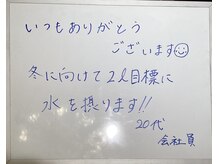 いつもありがとう
ございます☺
冬に向けて2ℓ目標に
水を摂ります!!
20代
会社員